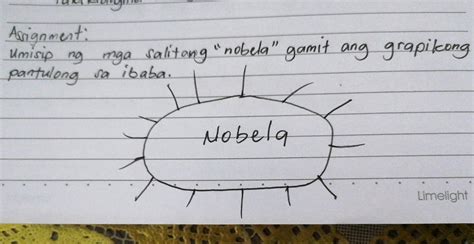 Assignment:
Umisip ng mga salitang "nobela" gamit ang grapikong
pantulong sa ibaba.
Nobela
Limelight